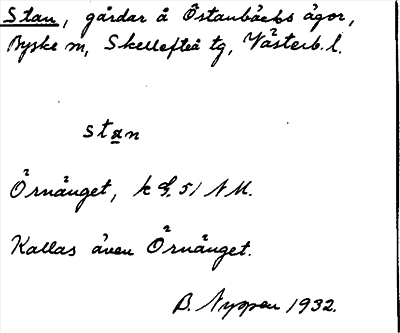 Stan, gårdar å Östanbäcks ägor,
Byske sn, Skellefteå tg, Västerb. l.
stan
Örnänget, k bl. 51 NV.
Kallas även Örnänget.
B. Nyman 1932.